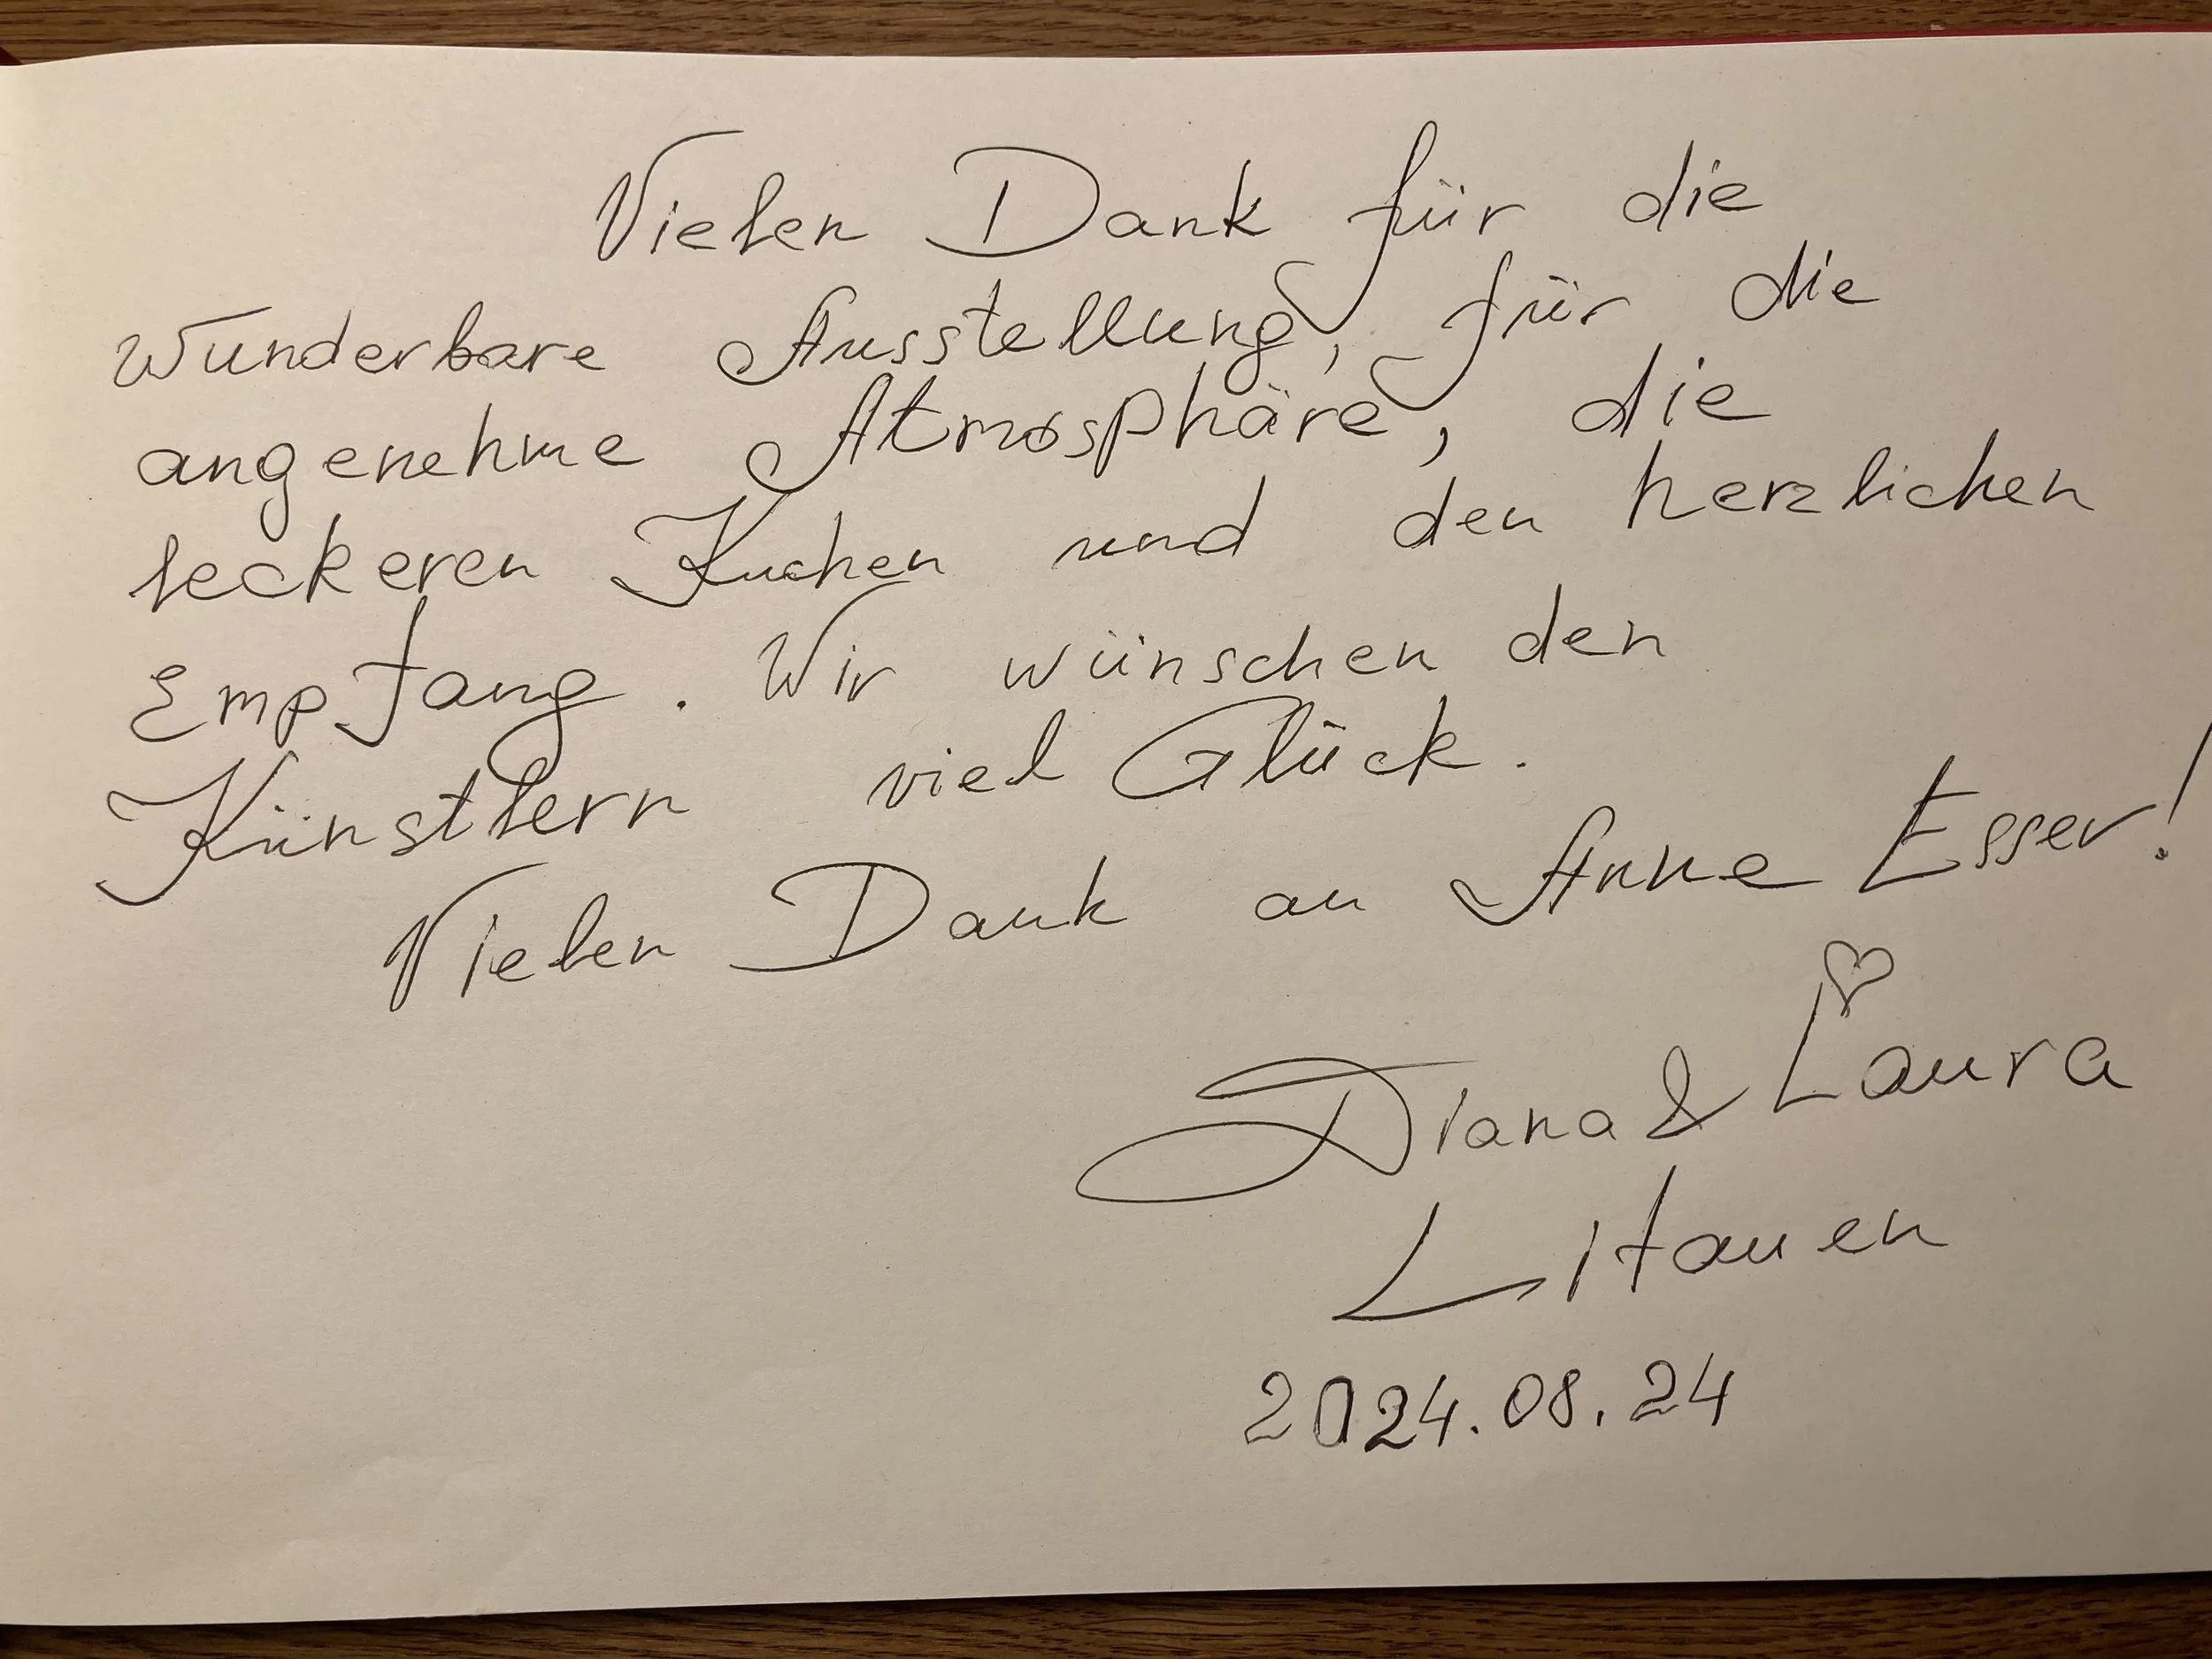 Vielen Dank für die
wunderbare Ausstellung, für die
angenehme Atmosphäre, die
leckeren Kuchen und den herzlichen
Empfang. Wir wünschen den
Künstlern viel Glück.
Vielen Dank an Anne Esser!
Diana & Laura
Litauen
2024.08.24